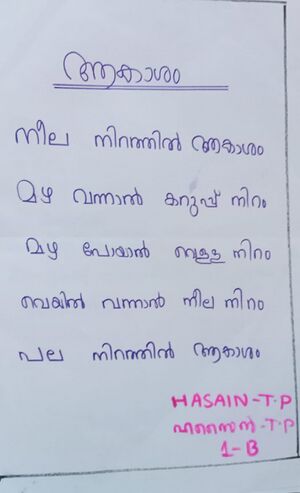 ആകാശം
നീല നിറത്തിൽ ആകാശം
മഴ വന്നാൽ കറുപ്പ് നിറം
മഴ പോയാൽ വെള്ള നിറം
വെയിൽ വന്നാൽ നീല നിറം
പല നിറത്തിൽ ആകാശം
HASAIN-T.P
ഹസൈൻ-T.P
1-B